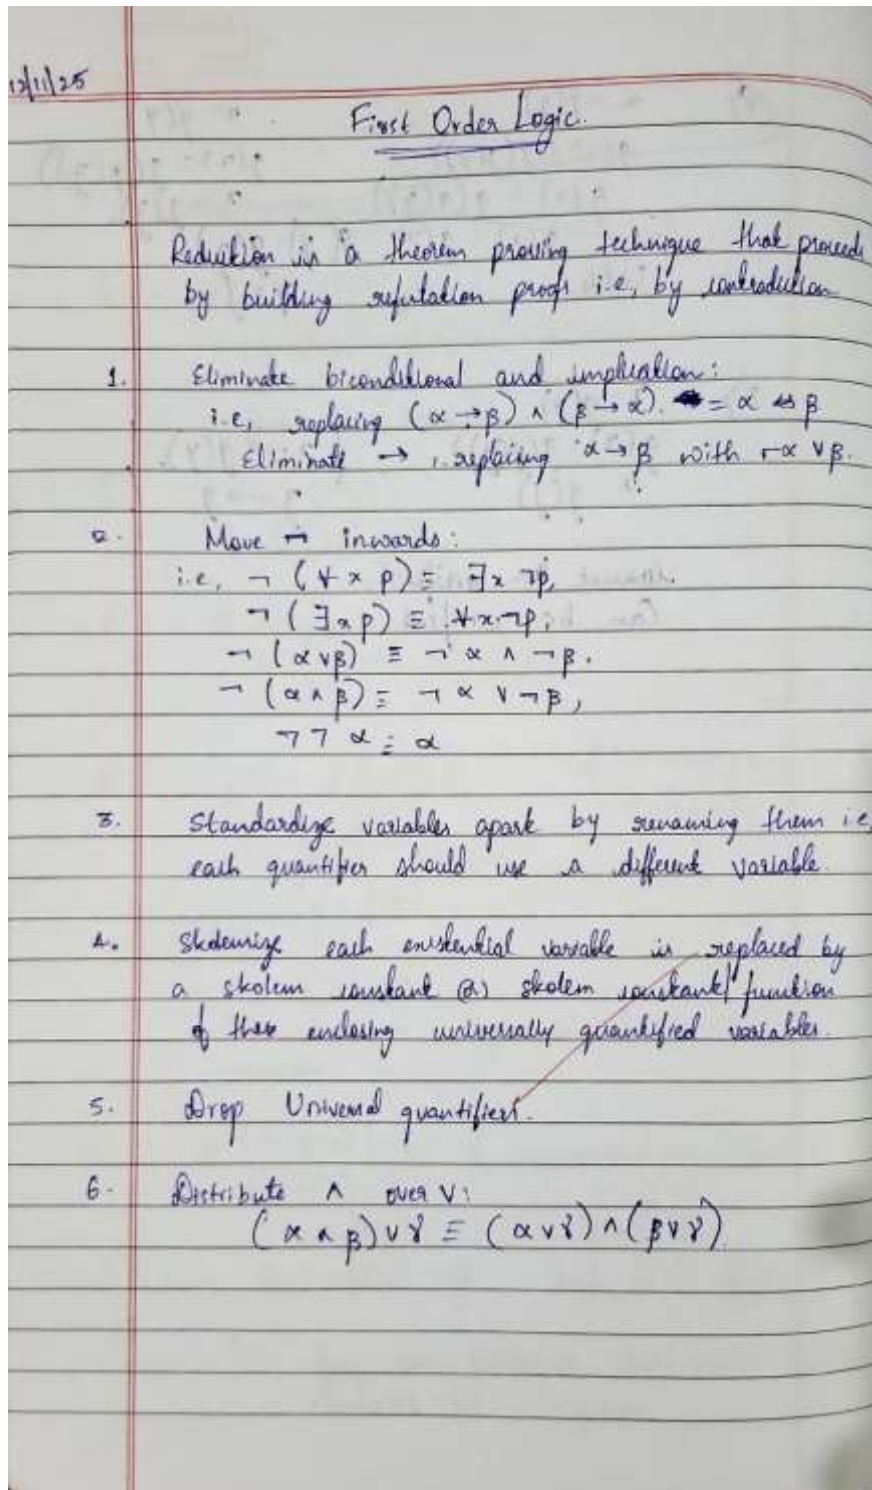 12/11/25
First Order Logic.
Reduction is a theorem proving technique that proceeds
by building refutation proofs i.e, by contradiction
1. Eliminate biconditional and implication:
i.e, replacing (α → β) ∧ (β → α). = α ⇔ β
Eliminate → , replacing α → β with ¬α ∨ β.
2. Move ¬ inwards:
i.e, ¬ (∀ x p) ≡ ∃x ¬p,
¬ (∃x p) ≡ ∀x ¬p,
¬ (α ∨ β) ≡ ¬ α ∧ ¬ β.
¬ (α ∧ β) ≡ ¬ α ∨ ¬ β,
¬ ¬ α ≡ α
3. Standardize variables apart by renaming them i.e,
each quantifier should use a different variable.
4. Skolemize each existential variable is replaced by
a skolem constant (or) skolem constant/function
of the enclosing universally quantified variables.
5. Drop Universal quantifiers.
6. Distribute ∧ over ∨:
(α ∧ β) ∨ γ ≡ (α ∨ γ) ∧ (β ∨ γ)